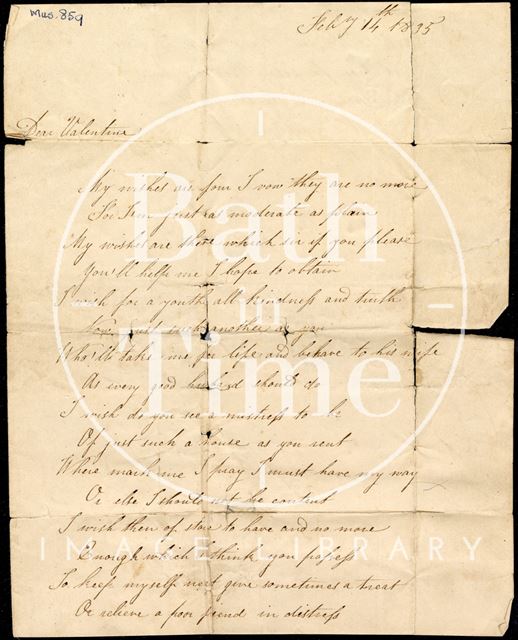 Mus. 859
Feby 14th 1835
Dear Valentine
My wishes are four I vow they are no more
For I'm just as moderate as plain
My wishes are these which sir if you please
You'll help me I hope to obtain
I wish for a youth all kindness and truth
Now just such another as you
Who'll take me for life and behave to his wife
As every good husband should do
I wish do you see a mistress to be
Of just such a house as you rent
Where mark me I pray I must have my way
Or else I should not be content
I wish then of store to have and no more
Enough which I think you possess
To keep myself neat give sometimes a treat
Or relieve a poor friend in distress
Bath
in
Time
IMAGE LIBRARY